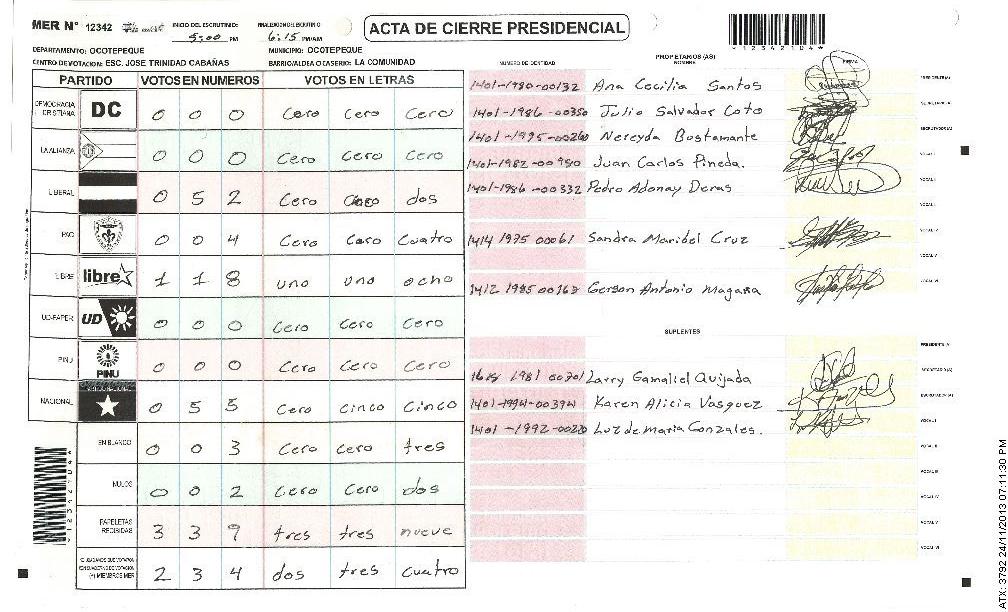 MER N° 12342 INICIO DEL ESCRUTINIO: 5:00 PM FINALIZACION DEL ESCRUTINIO 6:15 PM/AM
ACTA DE CIERRE PRESIDENCIAL
*12342104*
DEPARTAMENTO: OCOTEPEQUE MUNICIPIO: OCOTEPEQUE
CENTRO DE VOTACION: ESC. JOSE TRINIDAD CABAÑAS BARRIO/ALDEA O CASERIO: LA COMUNIDAD
PARTIDO VOTOS EN NUMEROS VOTOS EN LETRAS
DEMOCRACIA CRISTIANA DC 0 0 0 Cero Cero Cero
LA ALIANZA 0 0 0 Cero Cero Cero
LIBERAL 0 5 2 Cero dos
PAC 0 0 4 Cero Cero Cuatro
LIBRE libre 1 1 8 uno uno ocho
UD-FAPER UD 0 0 0 Cero Cero Cero
PINU PINU 0 0 0 Cero Cero Cero
NACIONAL 0 5 5 Cero Cinco Cinco
EN BLANCO 0 0 3 Cero Cero tres
NULOS 0 0 2 Cero Cero dos
PAPELETAS RECIBIDAS 3 3 9 tres tres nueve
(+) MIEMBROS MER 2 3 4 dos tres Cuatro
*12342104*
PROPIETARIOS (AS)
NUMERO DE IDENTIDAD NOMBRE FIRMA
1401-1980-00132 Ana Cecilia Santos PRESIDENTE(A)
1401-1986-00350 Julio Salvador Coto SECRETARIO(A)
1401-1995-00260 Nereyda Bustamante ESCRUTADOR(A)
1401-1982-00980 Juan Carlos Pineda. VOCAL I
1401-1986-00332 Pedro Adonay Deras VOCAL II
VOCAL III
1414 1975 00061 Sandra Maribel Cruz VOCAL IV
VOCAL V
1412 1985 00163 Gerson Antonio Magaña VOCAL VI
SUPLENTES
PRESIDENTE(A)
1981 00701 Larry Gamaliel Quijada SECRETARIO(A)
1401-1994-00394 Karen Alicia Vasquez ESCRUTADOR(A)
1401-1992-00220 Luz de Maria Gonzales. VOCAL I
VOCAL II
VOCAL III
VOCAL IV
VOCAL V
VOCAL VI
ATX: 3792 24/11/2013 07:11:30 PM